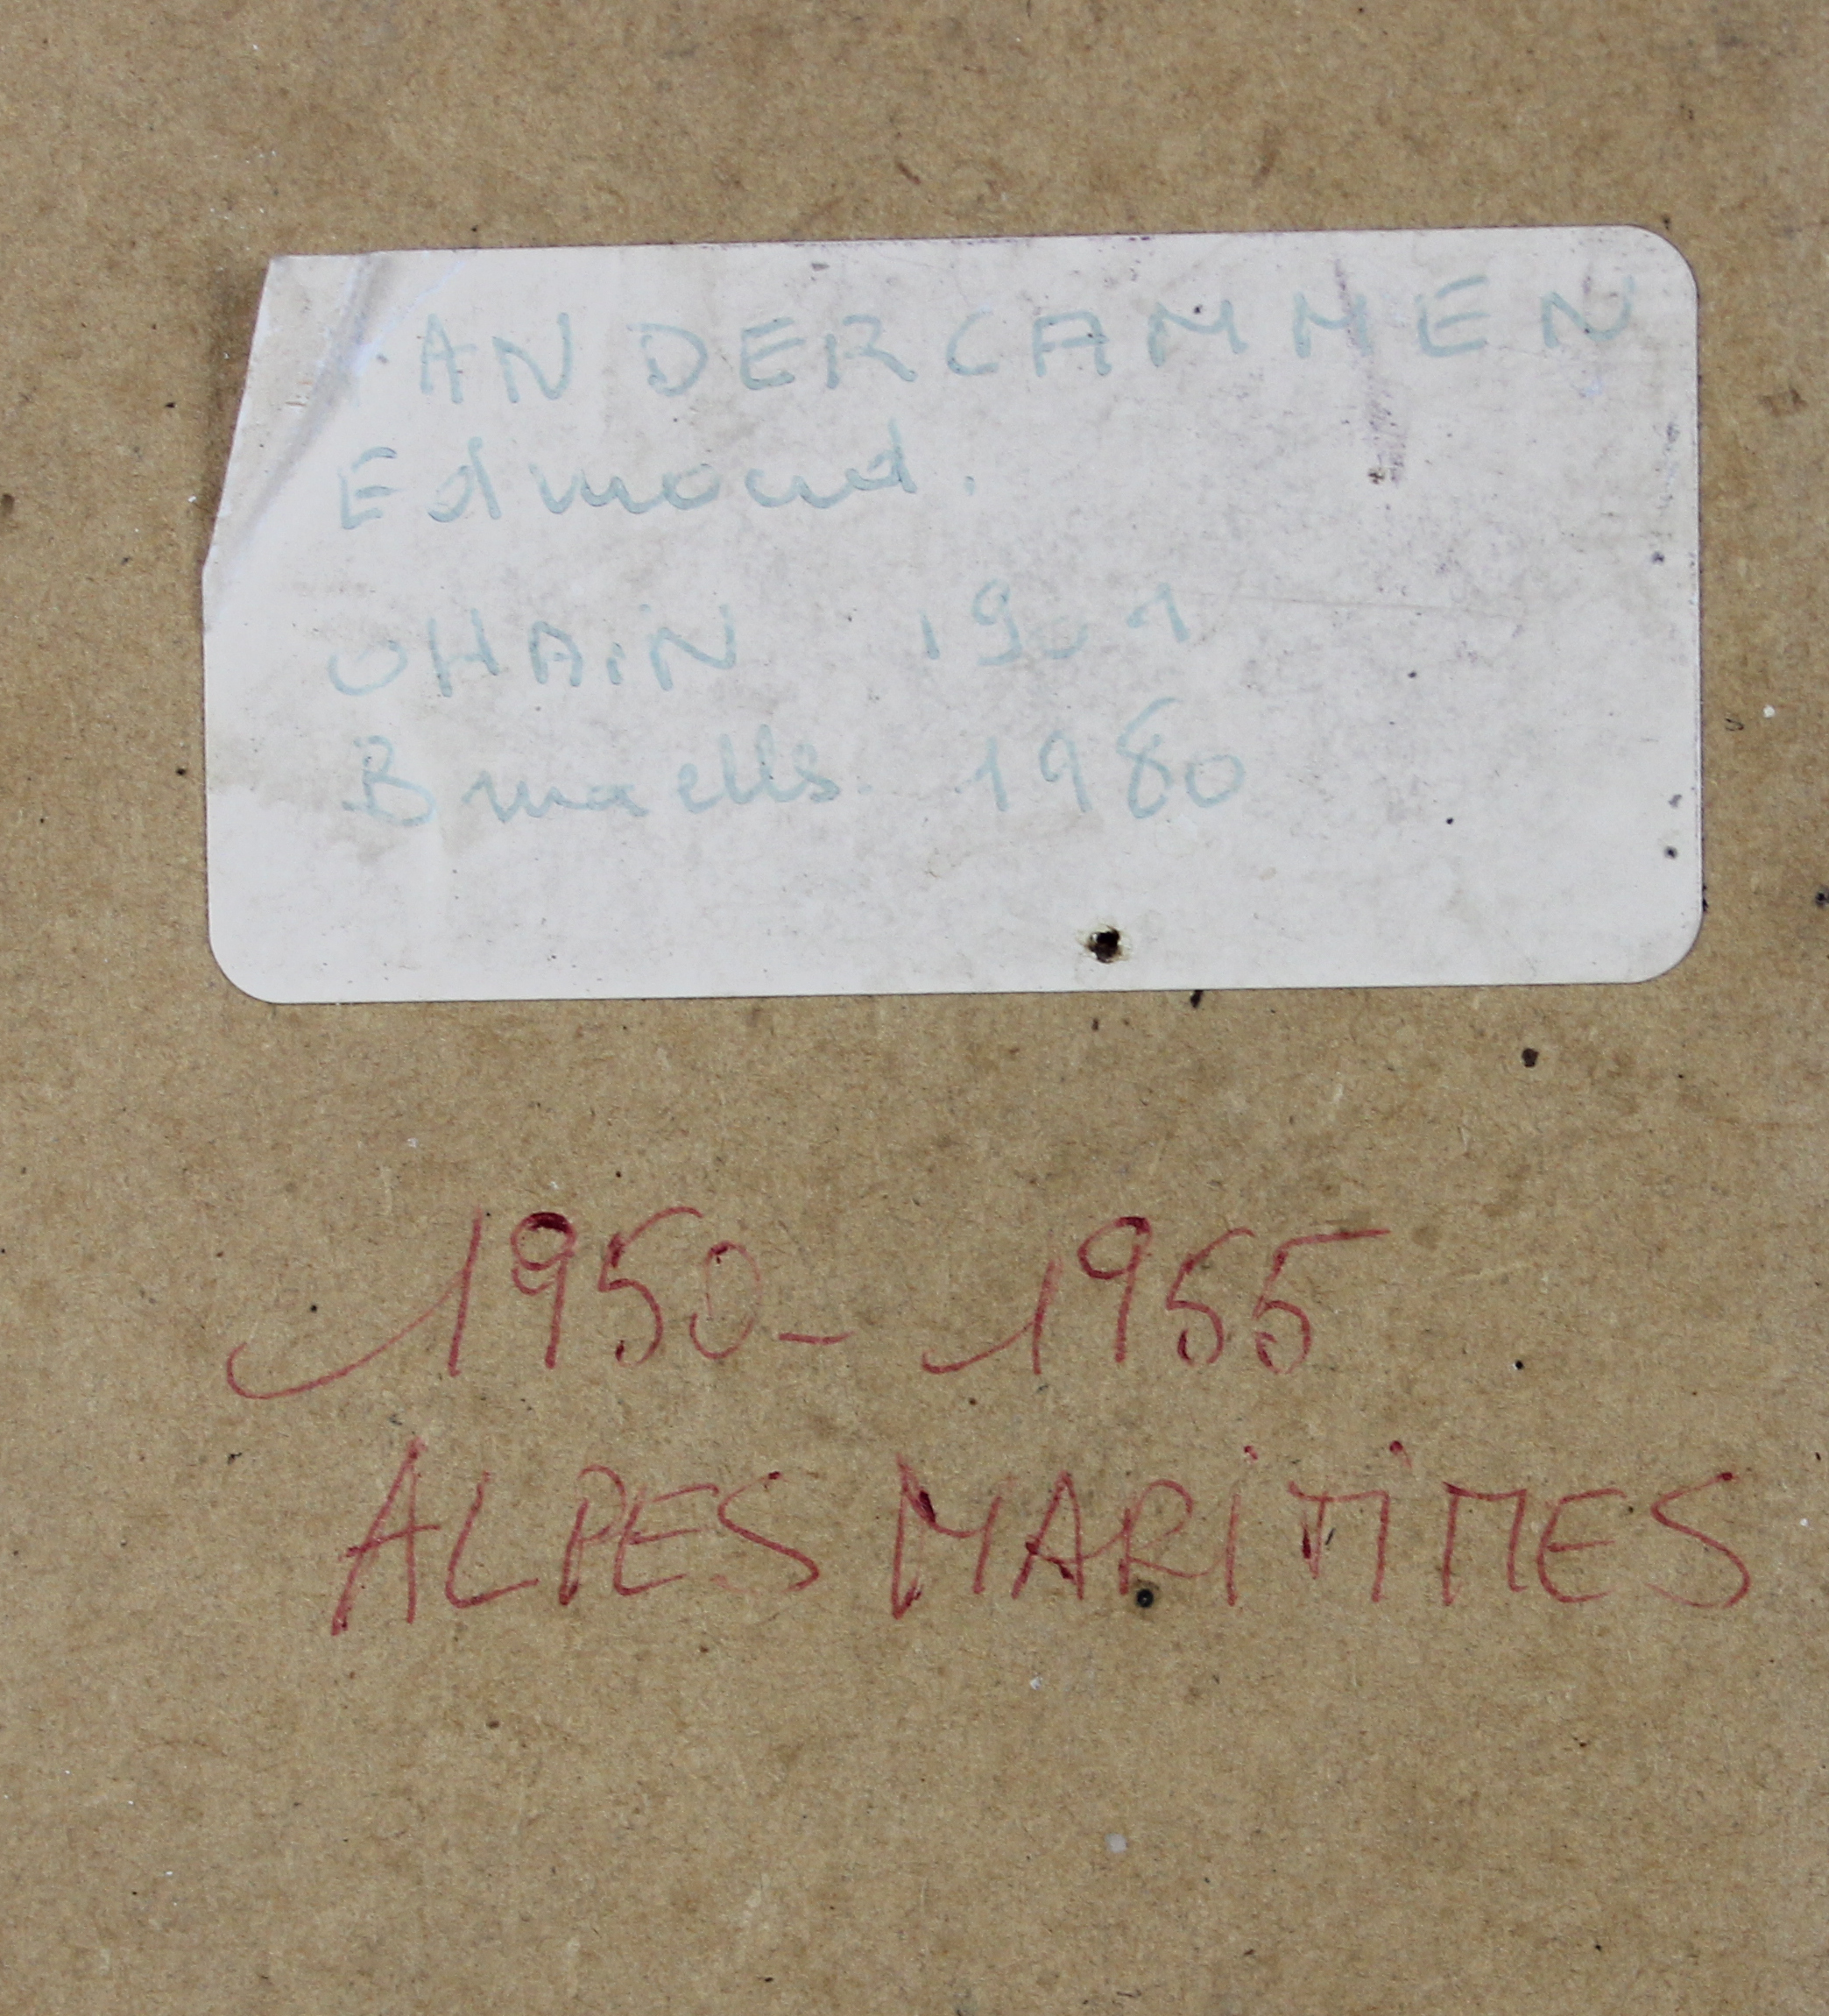 VANDERCAMMEN
Edmond.
OHAiN 1901
Bruxells. 1980
1950 - 1955
ALPES MARiTiMES